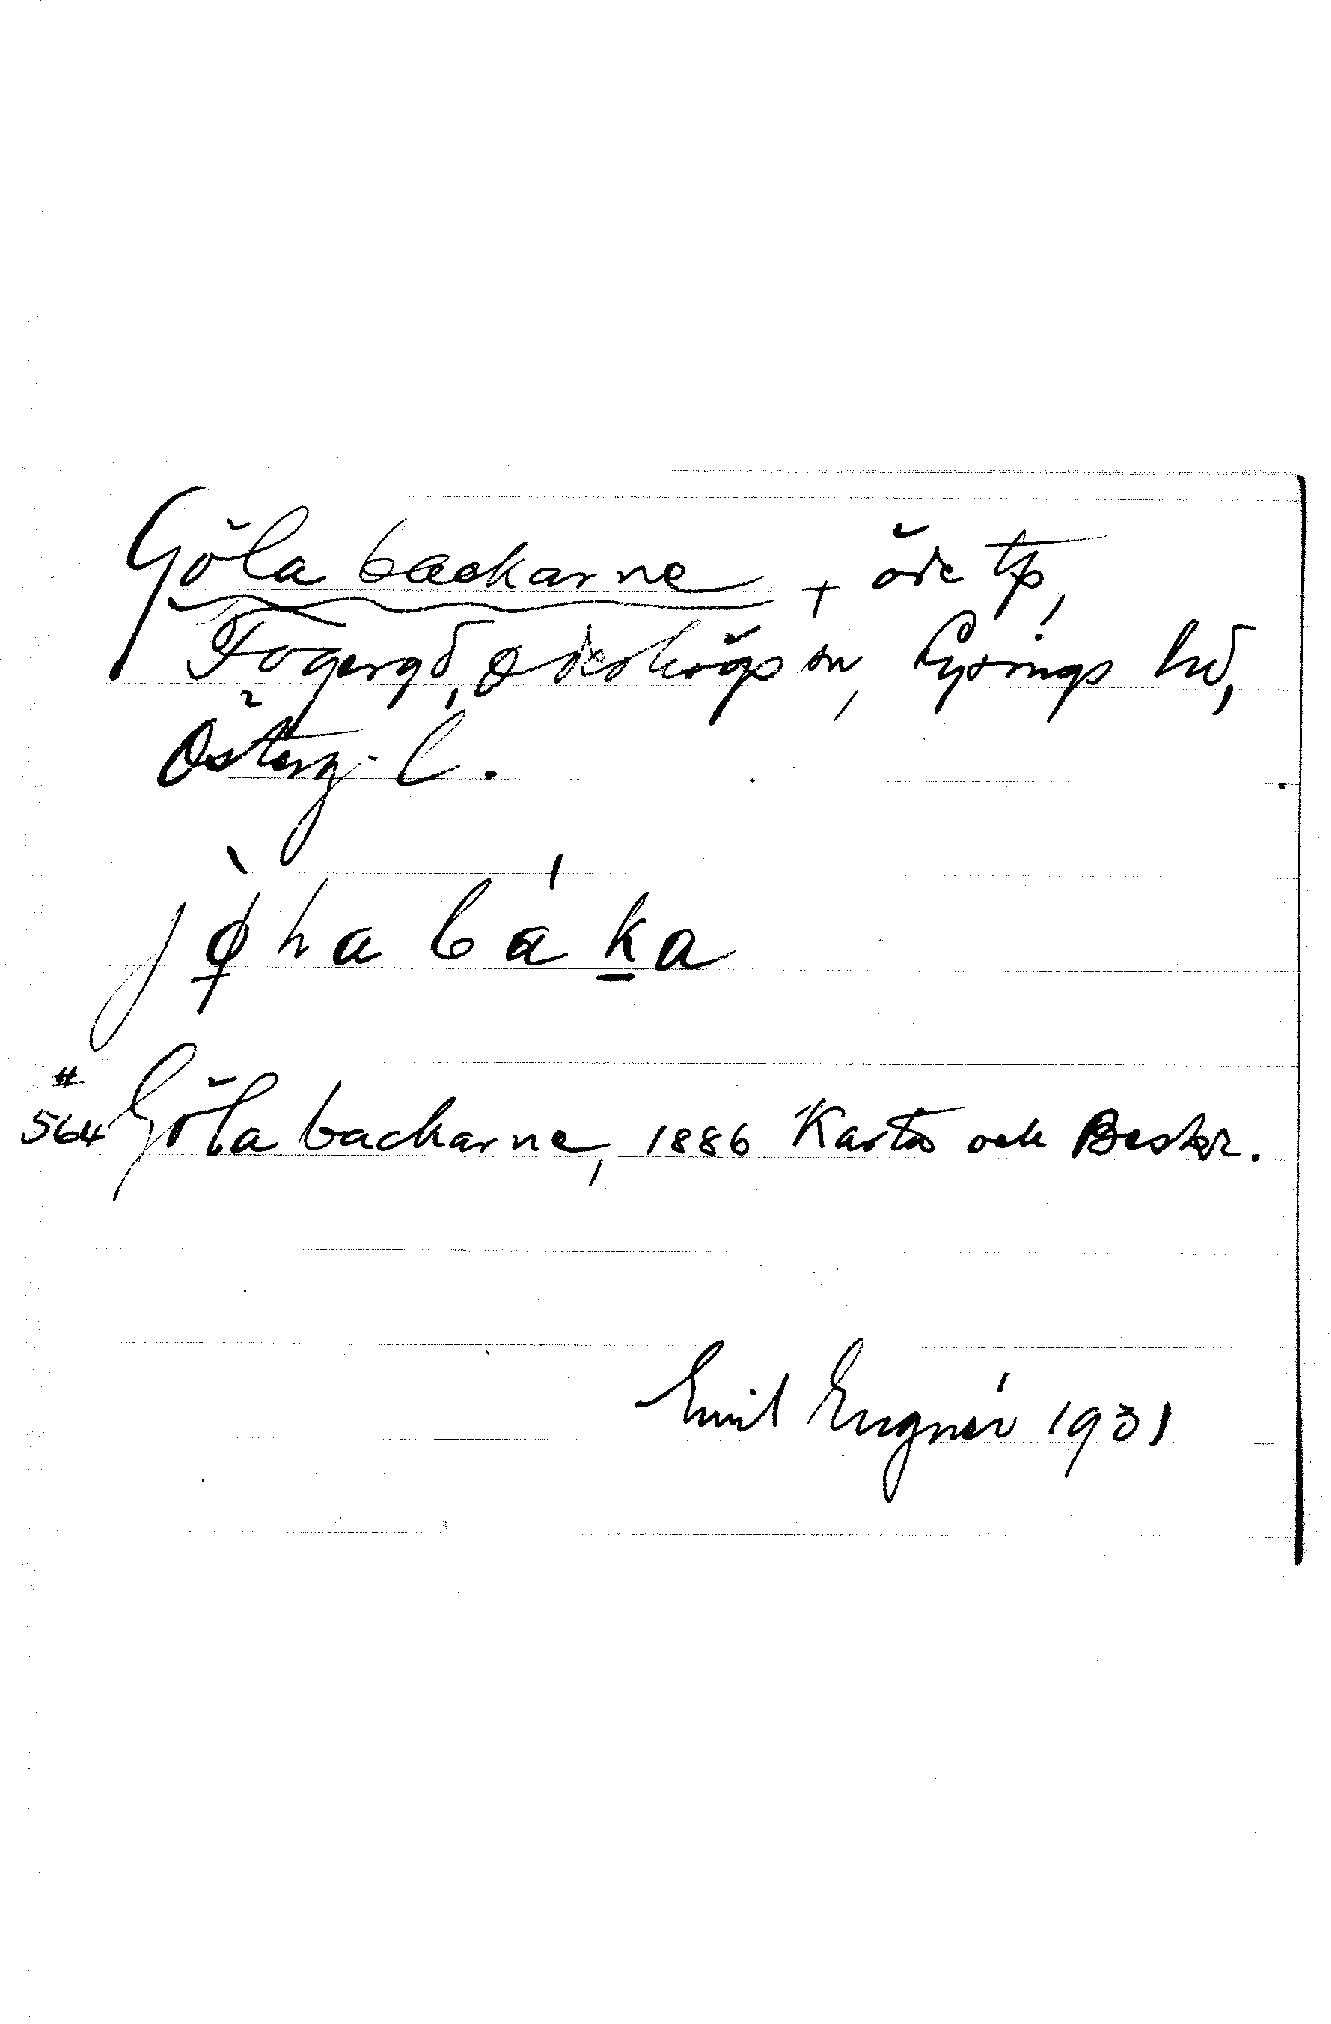 Göla backarne + öde tp,
Togergd, Ödeshögs sn, Lysings hd,
Österg. l.
jø̀ha báka
# 564 Göla backarne, 1886 Karta och Beskr.
Emil Engnér 1931